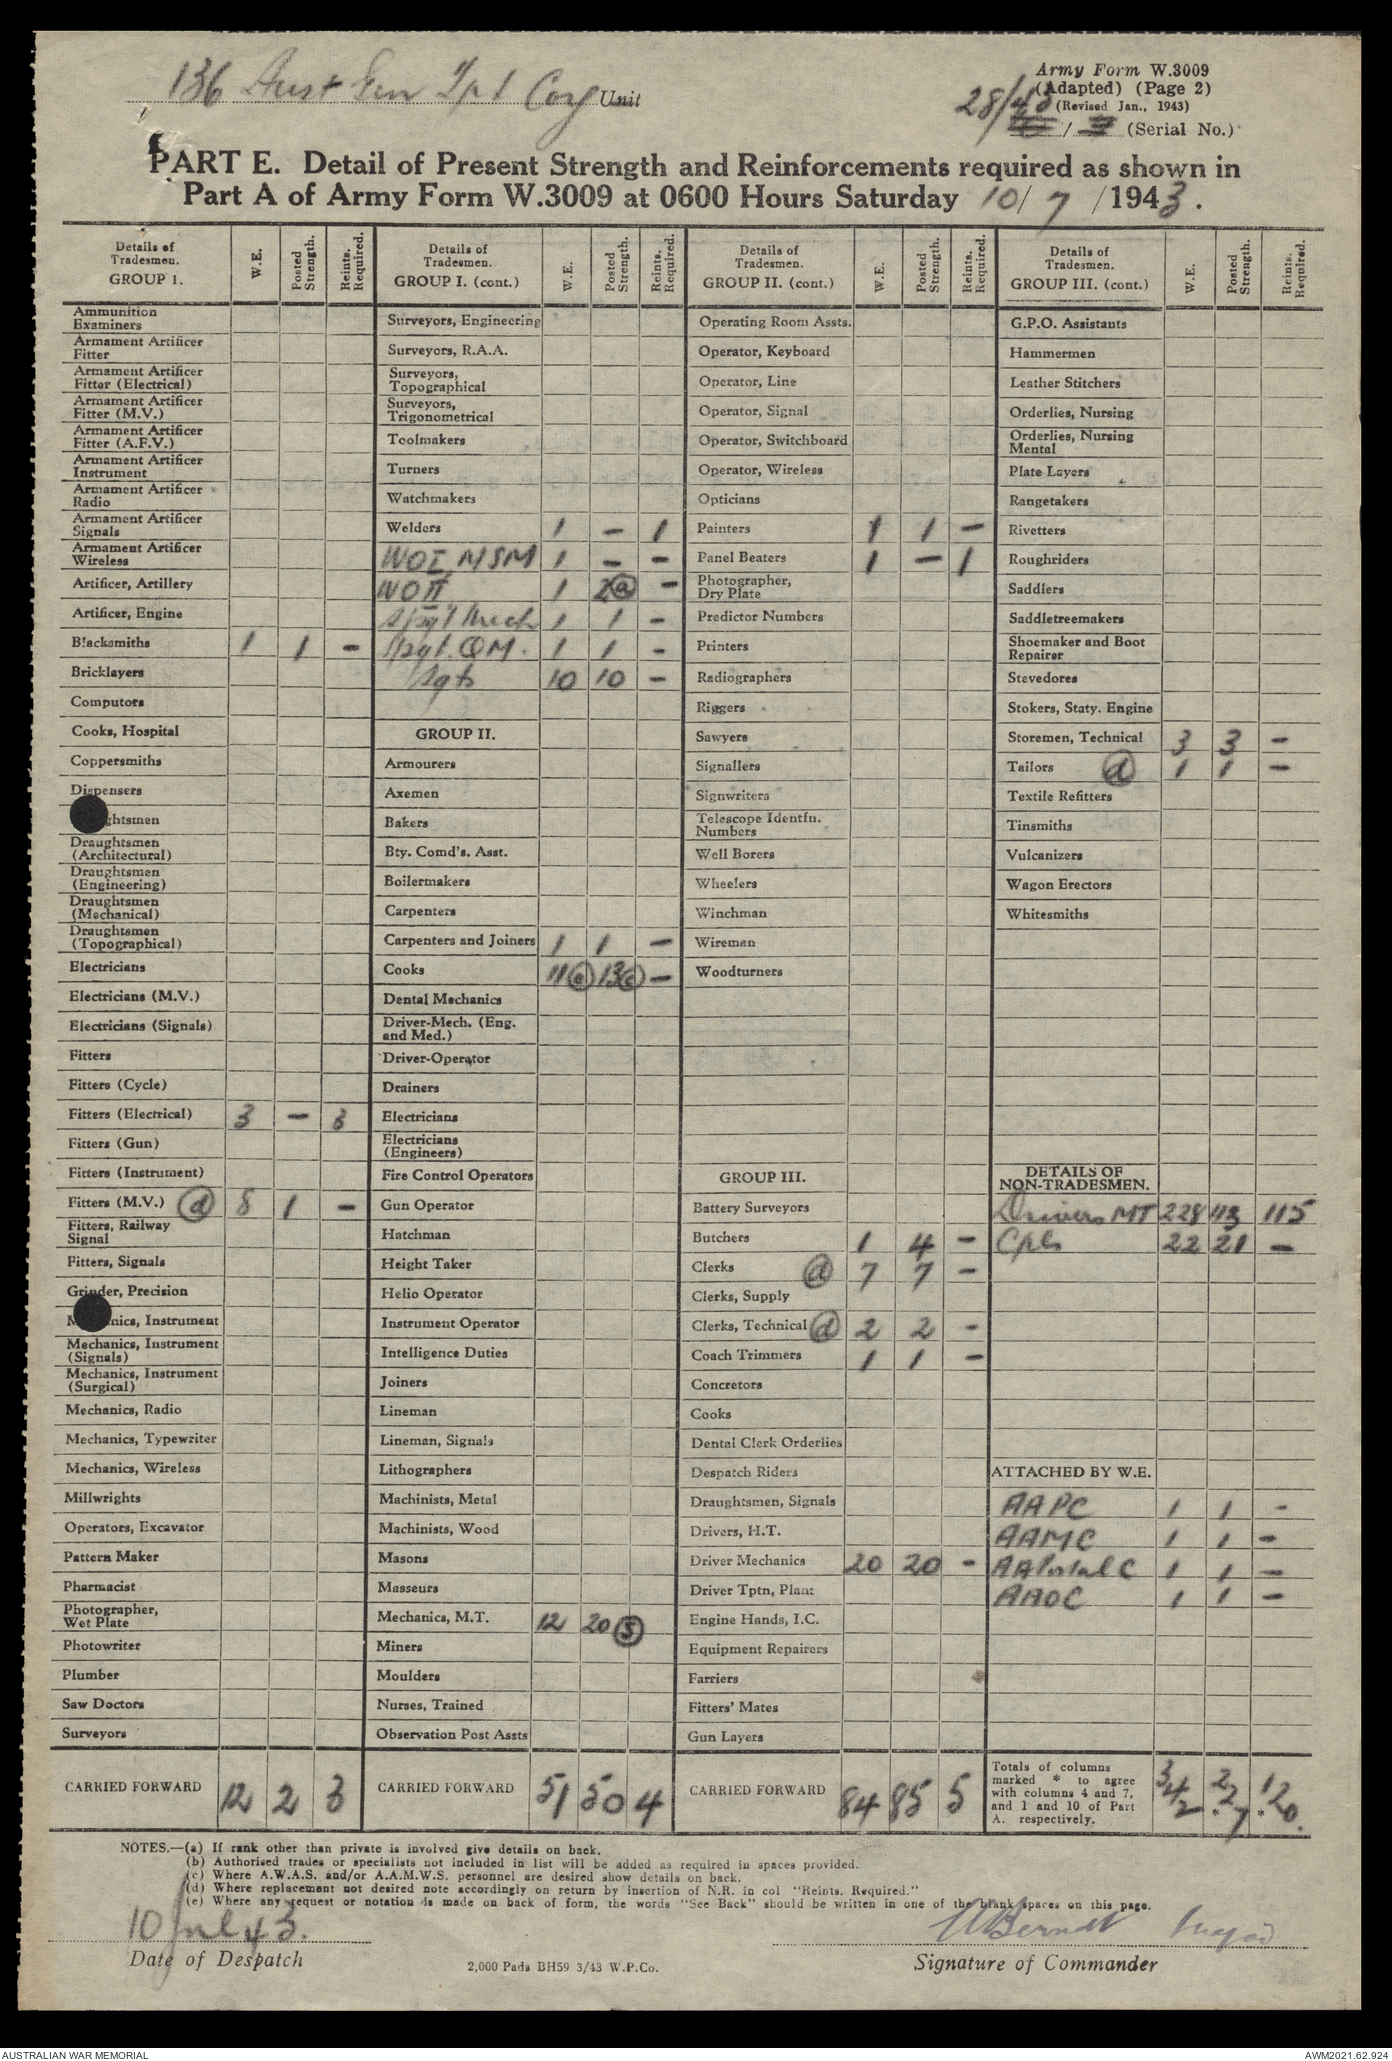 136 Aust Gen Tpt Coy Unit
Army Form W.3009
(Adapted) (Page 2)
(Revised Jan., 1943)
28/43
/ (Serial No.)
PART E. Detail of Present Strength and Reinforcements required as shown in
Part A of Army Form W.3009 at 0600 Hours Saturday 10/ 7 /1943.
Details of Tradesmen. GROUP 1. W.E. Posted Strength. Reints. Required.
Ammunition Examiners
Armament Artificer Fitter
Armament Artificer Fitter (Electrical)
Armament Artificer Fitter (M.V.)
Armament Artificer Fitter (A.F.V.)
Armament Artificer Instrument
Armament Artificer Radio
Armament Artificer Signals
Armament Artificer Wireless
Artificer, Artillery
Artificer, Engine
Blacksmiths 1 1 -
Bricklayers
Computors
Cooks, Hospital
Coppersmiths
Dispensers
ghtsmen
Draughtsmen (Architectural)
Draughtsmen (Engineering)
Draughtsmen (Mechanical)
Draughtsmen (Topographical)
Electricians
Electricians (M.V.)
Electricians (Signals)
Fitters
Fitters (Cycle)
Fitters (Electrical) 3 - 3
Fitters (Gun)
Fitters (Instrument)
Fitters (M.V.) (d) 8 1 -
Fitters, Railway Signal
Fitters, Signals
Grinder, Precision
Mechanics, Instrument
Mechanics, Instrument (Signals)
Mechanics, Instrument (Surgical)
Mechanics, Radio
Mechanics, Typewriter
Mechanics, Wireless
Millwrights
Operators, Excavator
Pattern Maker
Pharmacist
Photographer, Wet Plate
Photowriter
Plumber
Saw Doctors
Surveyors
CARRIED FORWARD 12 2 3
Details of Tradesmen. GROUP I. (cont.) W.E. Posted Strength. Reints. Required.
Surveyors, Engineering
Surveyors, R.A.A.
Surveyors, Topographical
Surveyors, Trigonometrical
Toolmakers
Turners
Watchmakers
Welders 1 - 1
WOI MSM 1 - -
WOII 1 2(a) -
S/Sgt Mech 1 1 -
S/Sgt. QM. 1 1 -
Sgts 10 10 -
GROUP II.
Armourers
Axemen
Bakers
Bty. Comd's. Asst.
Boilermakers
Carpenters
Carpenters and Joiners 1 1 -
Cooks 11(c) 13(c) -
Dental Mechanics
Driver-Mech. (Eng. and Med.)
Driver-Operator
Drainers
Electricians
Electricians (Engineers)
Fire Control Operators
Gun Operator
Hatchman
Height Taker
Helio Operator
Instrument Operator
Intelligence Duties
Joiners
Lineman
Lineman, Signals
Lithographers
Machinists, Metal
Machinists, Wood
Masons
Masseurs
Mechanics, M.T. 12 20 (3)
Miners
Moulders
Nurses, Trained
Observation Post Assts
CARRIED FORWARD 51 50 4
Details of Tradesmen. GROUP II. (cont.) W.E. Posted Strength. Reints. Required.
Operating Room Assts.
Operator, Keyboard
Operator, Line
Operator, Signal
Operator, Switchboard
Operator, Wireless
Opticians
Painters 1 1 -
Panel Beaters 1 - 1
Photographer, Dry Plate
Predictor Numbers
Printers
Radiographers
Riggers
Sawyers
Signallers
Signwriters
Telescope Identfn. Numbers
Well Borers
Wheelers
Winchman
Wireman
Woodturners
GROUP III.
Battery Surveyors
Butchers 1 4 -
Clerks (d) 7 7 -
Clerks, Supply
Clerks, Technical (d) 2 2 -
Coach Trimmers 1 1 -
Concretors
Cooks
Dental Clerk Orderlies
Despatch Riders
Draughtsmen, Signals
Drivers, H.T.
Driver Mechanics 20 20 -
Driver Tptn, Plant
Engine Hands, I.C.
Equipment Repairers
Farriers
Fitters' Mates
Gun Layers
CARRIED FORWARD 84 85 5
Details of Tradesmen. GROUP III. (cont.) W.E. Posted Strength. Reints. Required.
G.P.O. Assistants
Hammermen
Leather Stitchers
Orderlies, Nursing
Orderlies, Nursing Mental
Plate Layers
Rangetakers
Rivetters
Roughriders
Saddlers
Saddletreemakers
Shoemaker and Boot Repairer
Stevedores
Stokers, Staty. Engine
Storemen, Technical 3 3 -
Tailors (d) 1 1 -
Textile Refitters
Tinsmiths
Vulcanizers
Wagon Erectors
Whitesmiths
DETAILS OF NON-TRADESMEN.
Drivers MT 228 113 115
Cpls 22 21 -
ATTACHED BY W.E.
AAPC 1 1 -
AAMC 1 1 -
AAPostal C 1 1 -
AAOC 1 1 -
Totals of columns marked * to agree with columns 4 and 7, and 1 and 10 of Part A. respectively. 342 227 * 120. *
NOTES.—(a) If rank other than private is involved give details on back.
(b) Authorised trades or specialists not included in list will be added as required in spaces provided.
(c) Where A.W.A.S. and/or A.A.M.W.S. personnel are desired show details on back.
(d) Where replacement not desired note accordingly on return by insertion of N.R. in col "Reints. Required."
(e) Where any request or notation is made on back of form, the words "See Back" should be written in one of the blank spaces on this page.
10 Jul 43.
Berndt Major
Date of Despatch
2,000 Pads BH59 3/43 W.P.Co.
Signature of Commander
AUSTRALIAN WAR MEMORIAL
AWM2021.62.924